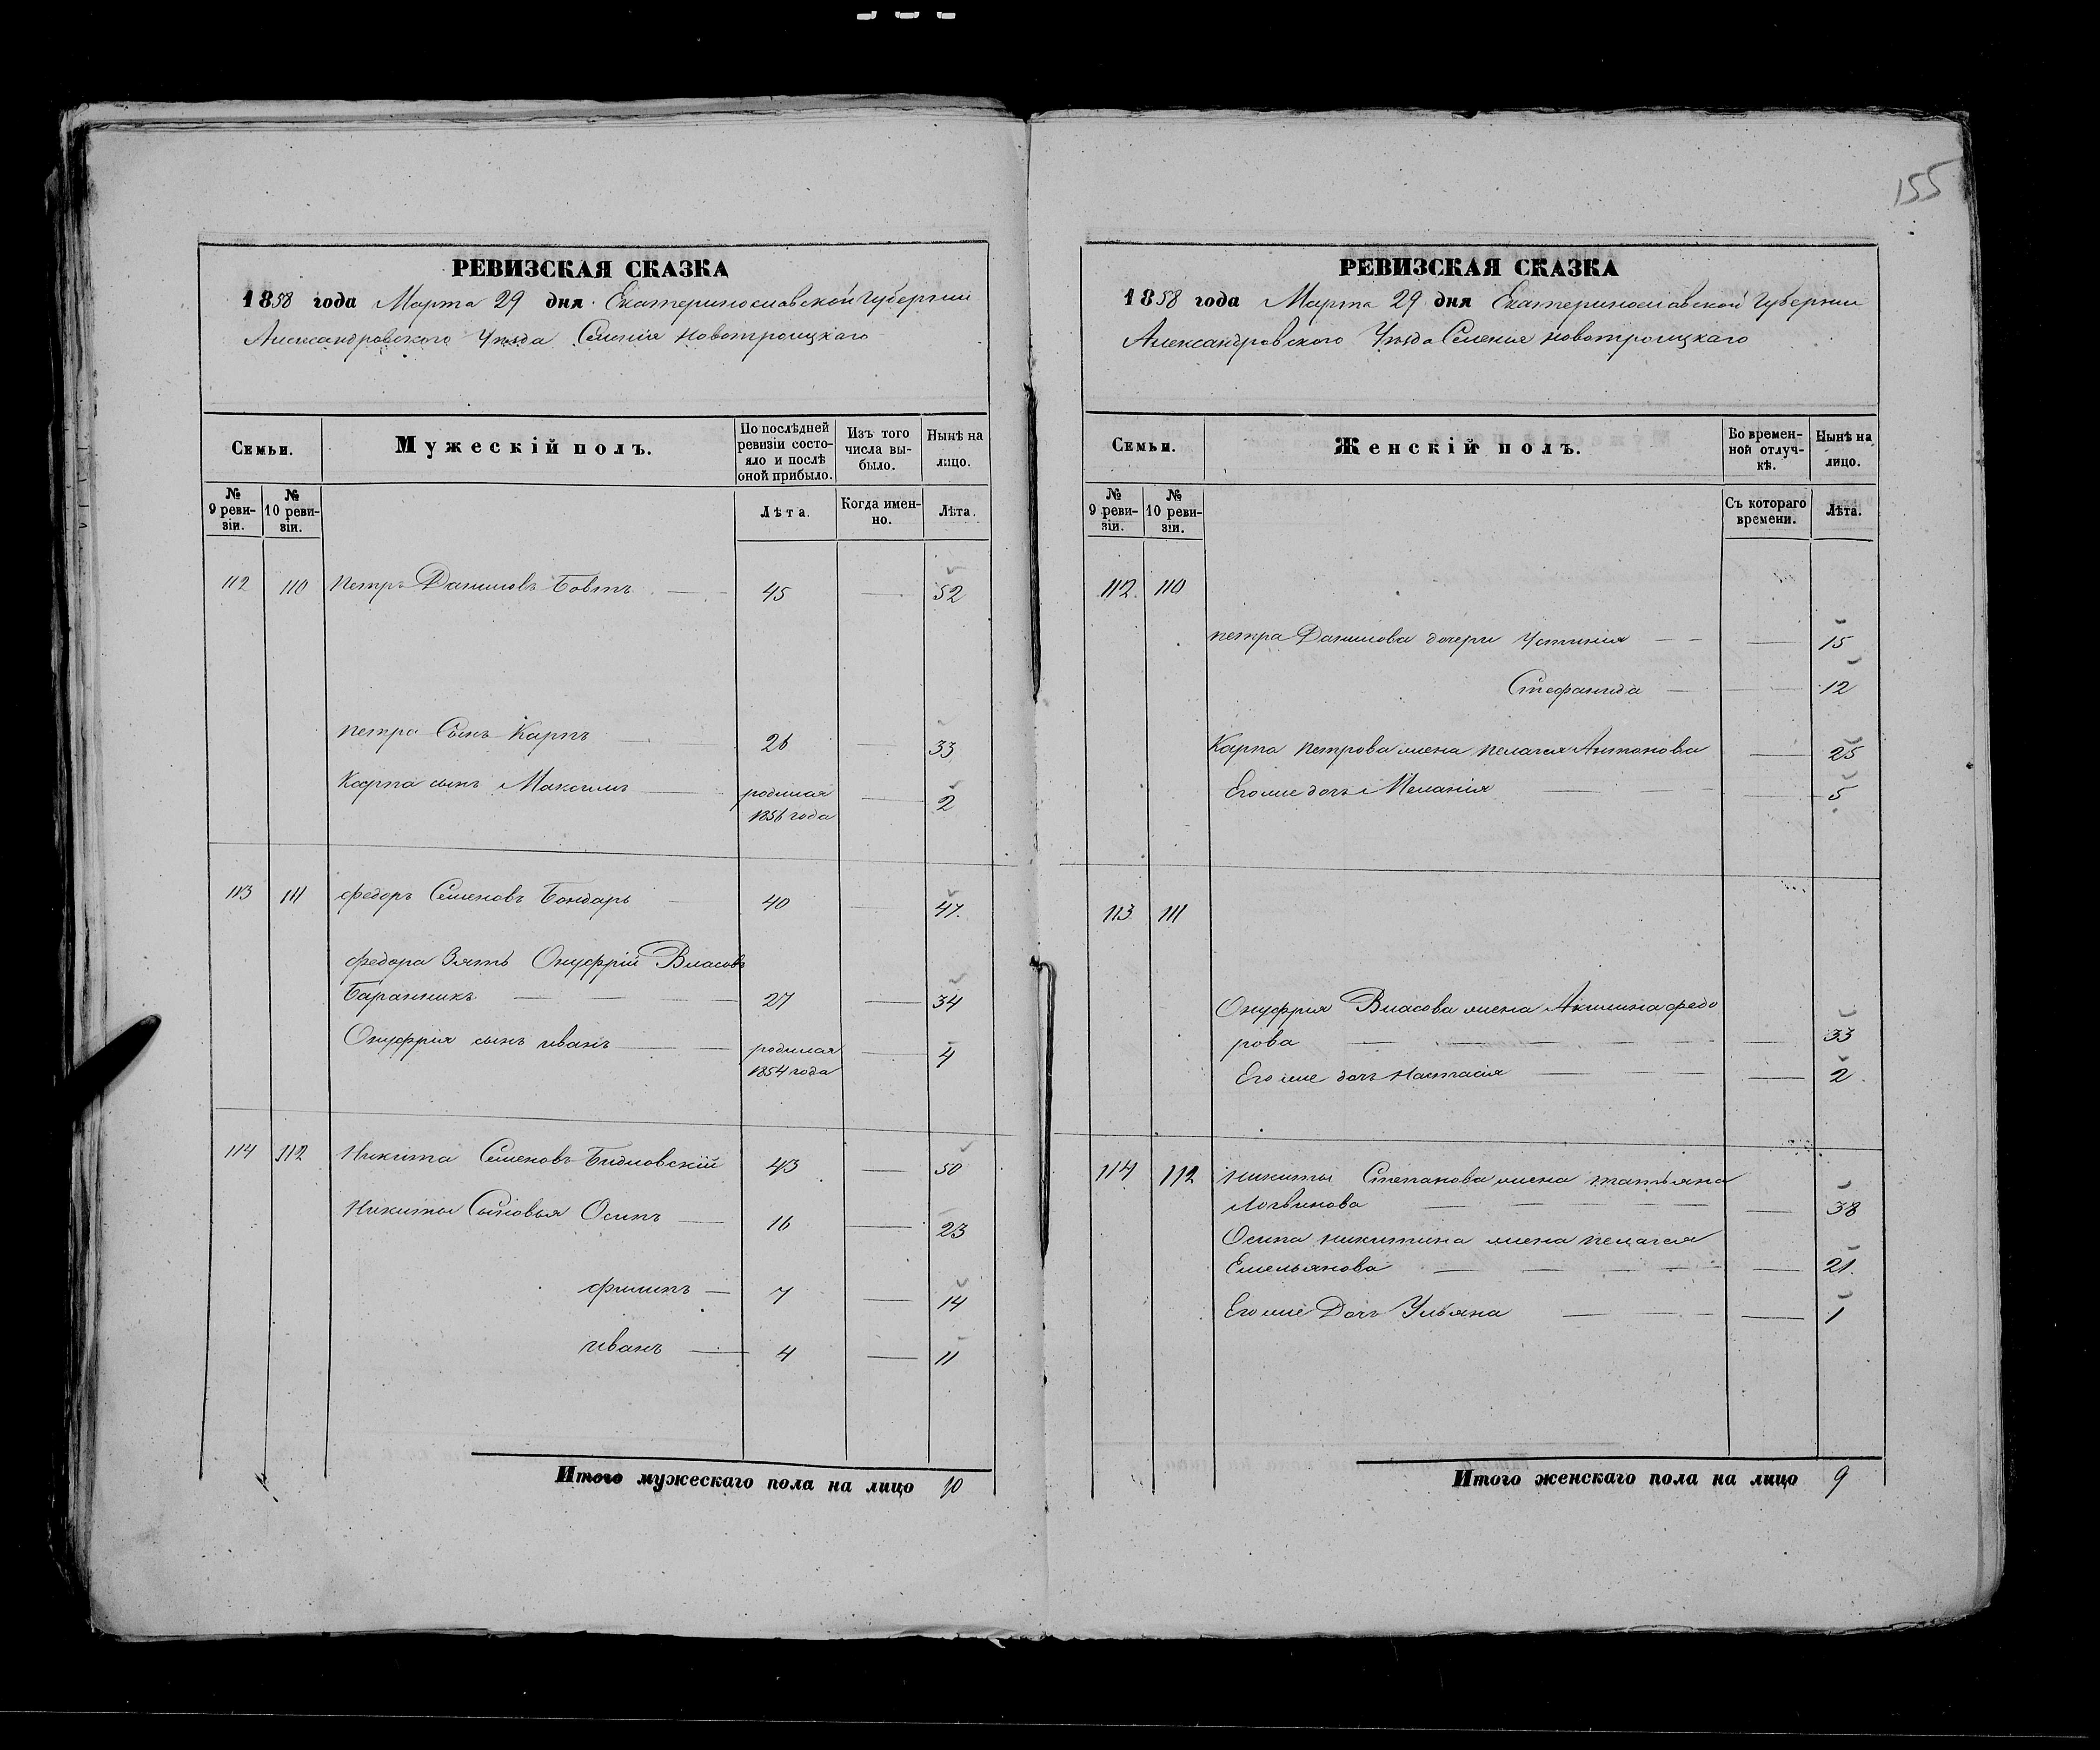 155
РЕВИЗСКАЯ СКАЗКА
1858 года Марта 29 дня Екатеринославской Губернии
Александровского Уезда Селенія Новотроицкаго
Семьи.
Мужескій полъ.
По послѣдней ревизіи состояло и послѣ оной прибыло.
Изъ того числа выбыло.
Нынѣ на лицо.
№ 9 ревизіи.
№ 10 ревизіи.
Лѣта.
Когда именно.
Лѣта.
112 110 Петръ Даниловъ Бовтъ 45 52
Петра Сынъ Карпъ 26 33
Карпа сынъ Максимъ родился 1856 года 2
113 111 Федоръ Семеновъ Бондарь 40 47
Федора Зять Онуфрій Власовъ
Баранникъ 27 34
Онуфрія сынъ Иванъ родился 1854 года 4
114 112 Никита Семеновъ Бидловскій 43 50
Никиты Сыновья Осипъ 16 23
Филипъ 7 14
Иванъ 4 11
Итого мужескаго пола на лицо 10
РЕВИЗСКАЯ СКАЗКА
1858 года Марта 29 дня Екатеринославской Губернии
Александровского Уезда Селенія Новотроицкаго
Семьи.
Женскій полъ.
Во временной отлучкѣ.
Нынѣ на лицо.
№ 9 ревизіи.
№ 10 ревизіи.
Съ котораго времени.
Лѣта.
112 110
Петра Данилова дочери Устинія 15
Стефанида 12
Карпа Петрова жена Пелагея Антонова 25
Его же дочь Меланія 5
113 111
Онуфрия Власова жена Акилина Федо
рова 33
Его же дочь Настасія 2
114 112 Никиты Степанова жена Татьяна
Логвинова 38
Осипа Никитина жена Пелагея
Емельянова 21
Его же Дочь Ульяна 1
Итого женскаго пола на лицо 9